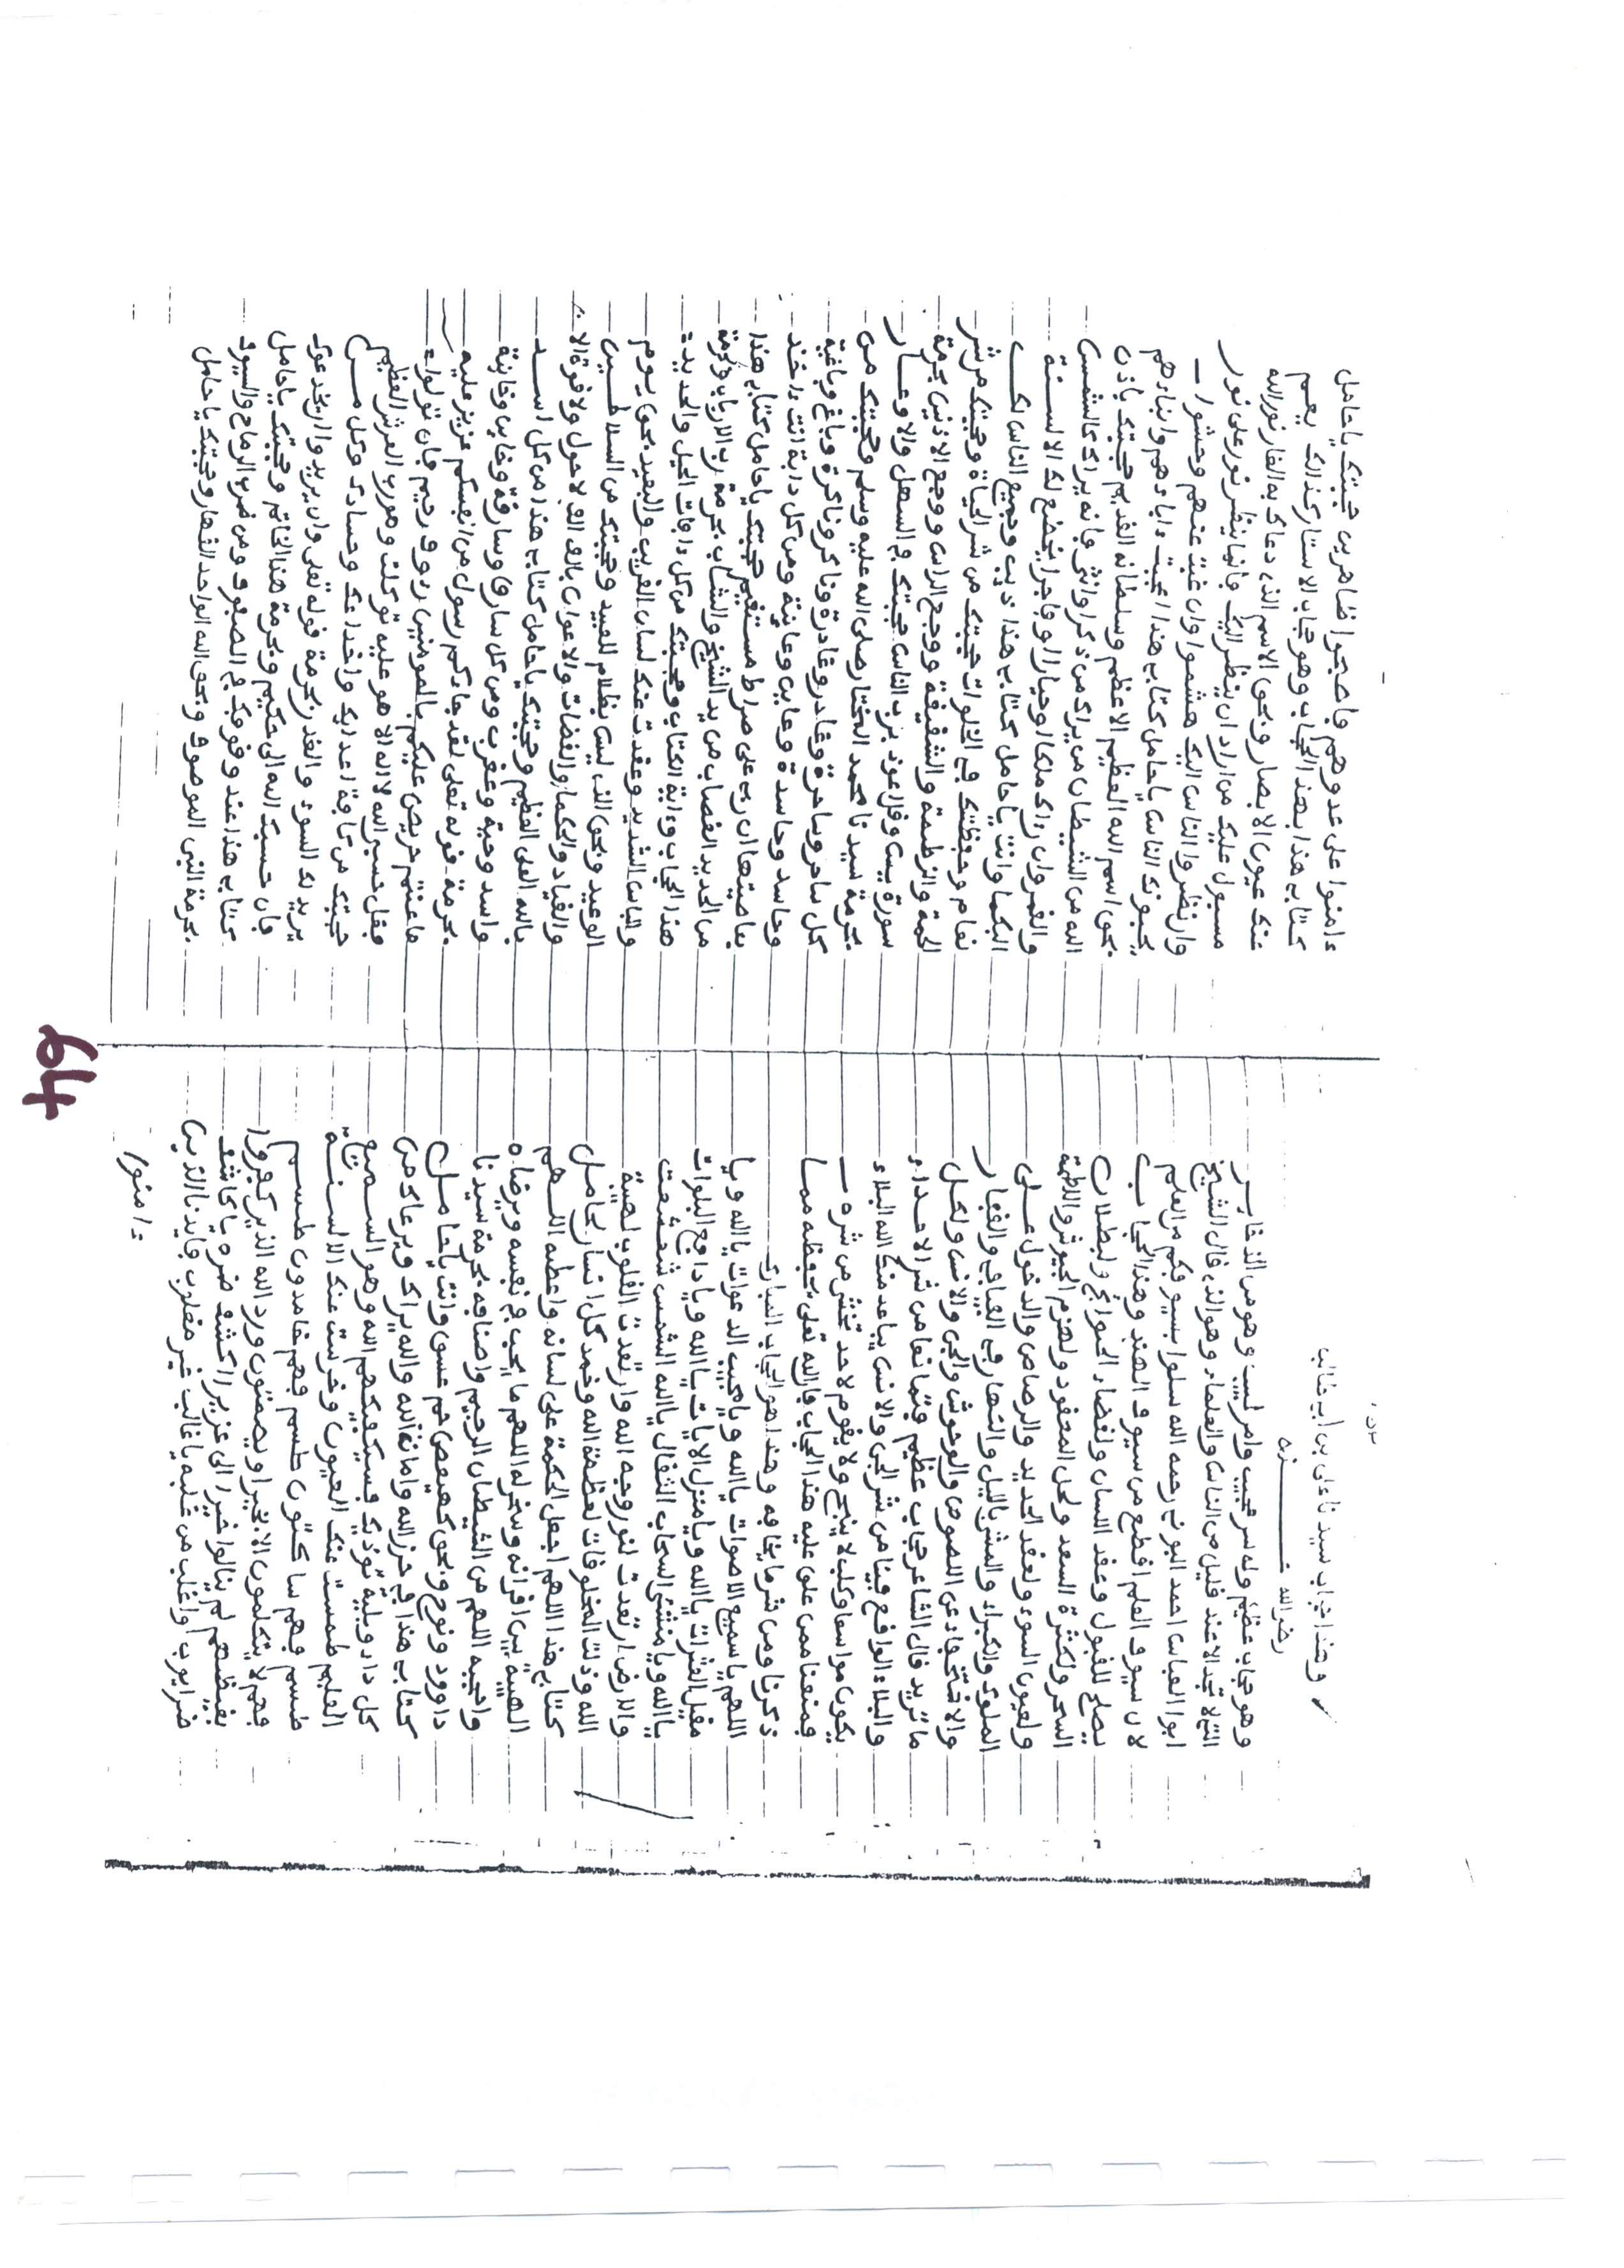 وهذا حجاب سيدنا على بن ابي طالب
رضى الله عنه
وهو حجاب عظيم وله سر عجيب وامر غريب وهو من الذخاير
التى لا تجد الا عند قليل من الناس والعلماء وهو الذى قال الشيخ
ابوا العباس احمد البونى رحمه الله سلوا بسيوفكم من العلم
لان سيوف العلم اقطع من سيوف الهند وهذا الحجاب
يصلح للقبول وعقد اللسان ولقضاء الحوايج ولبطلان
السحر ولكثرة السعد ولحل المعقود ولهزم الجيوش واللطمة
ولعيون السوء ولعقد الحديد والرصاص والدخول على
الملوك والكبراء والمشى بالليل والنهار فى الفيافى والقفار
والاختفاء عن اللصوص والوحوش والجن والانس ولكل
ما تريد قال الشاعر حجاب عظيم من شر الاعداء
والبلاء الواقع فينا من شر الجن والانس يباعد منك الله البلاء
يكون مواسعا وكلب لا ينبح ولا يقوم لاحد تخش من شره
فمنعنا ممن علق عليه هذا الحجاب فالله تعلى يحفظه مما
ذكرنا ومن شر ما يخافه وهذا هو الحجاب المبارك
اللهم يا سميع الاصوات يا الله ويا مجيب الدعوات يا الله ويا
مقيل العثرات يا الله ويا منزل الايات يا الله ويا دافع البلوات
يا الله ويا منشئ السحاب الثقال يا الله الشمس شعشعت
والارض ارتعدت لنور وجه الله وارتعدت القلوب لهيبة
الله وذلت المخلوقات لعظمة الله وخمد كل انسان لحامل
كتابى هذا اللهم اجعل الحكمة على لسانه واعطه اللهم
الهيبة بين اقرانه وسخر له اللهم ما يحب فى نفسه ويرضاه
واحجبه اللهم من الشيطان الرجيم واصنافه بحرمة سيدنا
داوود ونوح وبحق كهيعص حم عسق وانت يا حامل
كتابى هذا فى حرز الله وامانة الله والله يراك ويرعاك من
كل داء وبلية توذيك فسيكفيكهم الله وهو السميع
العليم طمست عنك العيون وخرست عنك الالسنة
طسم فهم ساكتون طسم فهم خامدون طسم
فهم لا يتكلمون الا بخير او يصمتون ورد الله الذين كفروا
بغيظهم لم ينالوا خيرا الى عزيزا اكشف ضره يا كاشف
ضر ايوب واغلب من غلبه يا غالب غير مغلوب فايدنا الذين
ءامنوا
ءامنوا على عدوهم فاصبحوا ظاهرين حجبتك يا حامل
كتابى هذا بهذا الحجاب وهو حجاب الاستار كذالك يعم
عنك عيون الابصار وبحق الاسم الذى دعاك به الغار نور الله
مسبول عليك من اراد ان ينظر اليك فانما ينظر نور على نور
وان نظروا الناس اليك هشموا وان غبت عنهم وحشوا
يحبونك الناس يا حامل كتابى هذا احببت ءاباءهم وابناءهم
بحق اسم الله العظيم الاعظم وسلطانه القديم حجبتك باذن
الله من الشيطان من يراك من ذكر او انثى فانه يراك كالشمس
والقمر وان رءاك ملكا او جبارا او فاجرا يخضع لك الالسنة
البكما وانت يا حامل كتابى هذا ذيب وجميع الناس لك
نعام وحفظتك فى الخلوات حجبتك من شر الحياة وحجبتك من شر
الحمة والزطمة والشقيقة ووجع الراس ووجع الاذنين بحرمة
سورة يس وقل اعوذ برب الناس حجبتك فى السهل والاوعار
بحرمة سيدنا محمد المختار صلى الله عليه وسلم وحجبتك من
كل ساحر وساحرة وغادر وغادرة وناكر وناكرة وباغ وباغية
وحاسد وحاسدة وعاين وعاينة ومن كل دابة انت ءاخذ
بناصيتها ان ربى على صراط مستقيم حجبتك يا حامل كتابى هذا
من الحديد القضاب من يد الشيخ والشاب بحرمة رب الارباب وبحرمة
هذا الحجاب وءاية الكتاب وحجبتك من كل ءافات الحيل والحديد
والباس الشديد وعقدت عنك لسان القريب والبعيد بحق يوم
الوعيد وبحق الذى ليس بظلام للعبيد وحجبتك من السلاطين
والقياد والحكام والقضات والاعوان بالف الف لا حول ولا قوة الا
بالله العلى العظيم وحجبتك يا حامل كتابى هذا من كل اسد
واسد وحية وعقرب ومن كل سارق وسارقة وخاين وخاينة
بحرمة قوله تعلى لقد جاءكم رسول من انفسكم عزيز عليه
ما عنتم حريص عليكم بالمومنين رءوف رحيم فان تولوا
فقل حسبى الله لا اله الا هو عليه توكلت وهو رب العرش العظيم
حجبتك من كافة اعدايك واخداعك وحسادك وكل من
يريد لك السوء والغدر بحرمة قوله تعلى وان يريدوا ان يخدعوك
فان حسبك الله الى حكيم وبحرمة هذا الخاتم وحجبتك يا حامل
كتابى هذا عند وقوفك فى الصفوف ومن ضرب الرماح والسيوف
بحرمة النبى الموصوف وبحق الله الواحد القهار وحجبتك يا حامل
64